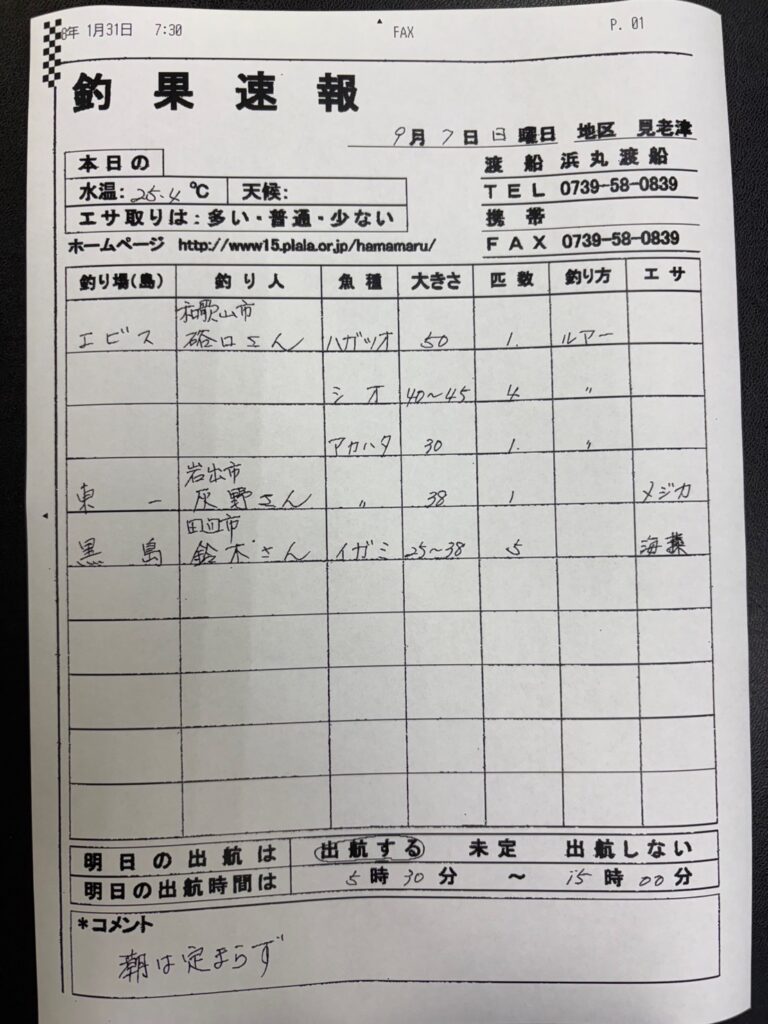 8年 1月31日 7:30 FAX P. 01
釣果速報
9月7日日曜日 地区 見老津
本日の
水温:25.4℃ 天候:
エサ取りは:多い・普通・少ない
渡船 浜丸渡船
TEL 0739-58-0839
携帯
FAX 0739-58-0839
ホームページ http://www15.plala.or.jp/hamamaru/
釣り場(島) 釣り人 魚種 大きさ 匹数 釣り方 エサ
和歌山市
エビス 口さん ハガツオ 50 1. ルアー
シオ 40~45 4 〃
アカハタ 30 1. 〃
岩出市
東一 灰野さん 〃 38 1 メジカ
田辺市
黒島 鈴木さん イガミ 25~38 5 海藻
明日の出航は 出航する 未定 出航しない
明日の出航時間は 5時30分 ~ 15時00分
*コメント
潮は定まらず